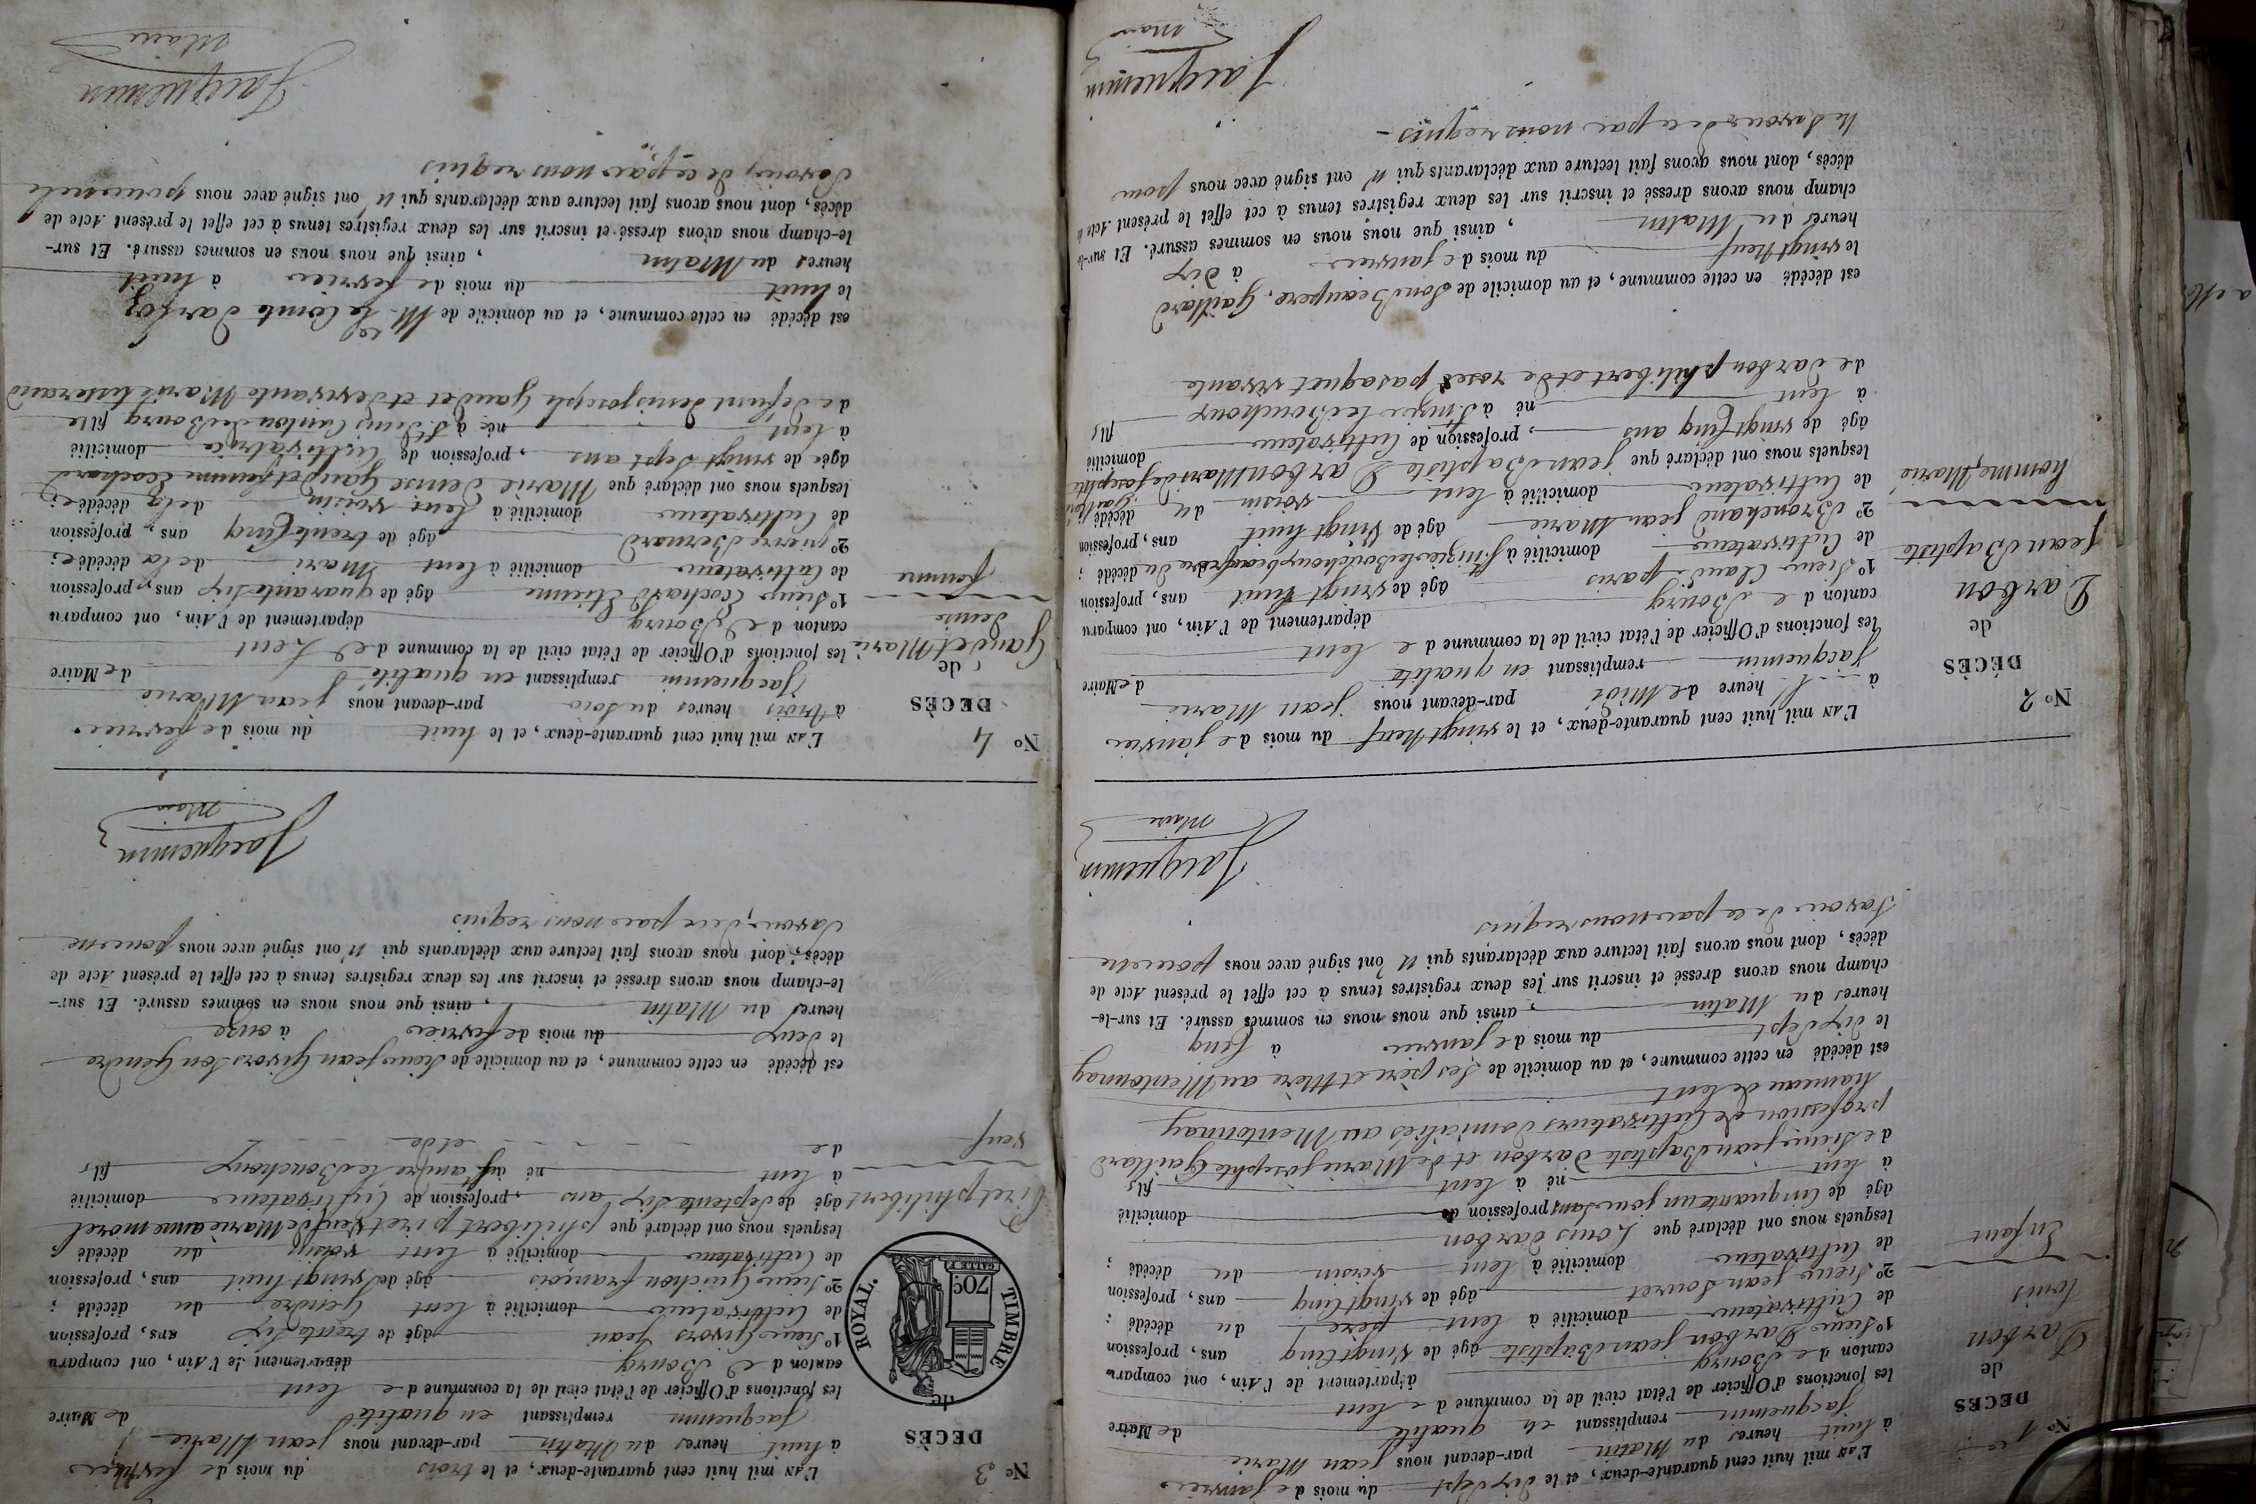 No 1er
DÉCÈS
de
Darbon
Louis
Enfant
L'AN mil huit cent quarante-deux, et le dix sept du mois de janvier
à huit heures du Matin par-devant nous jean Marie
jacquemin remplissant en qualité de Maire
les fonctions d'Officier de l'état civil de la commune de lent
canton de Bourg département de l'Ain, ont comparu
1o Sieur Darbon jean Baptiste âgé de vingt cinq ans, profession
de Cultivateur domicilié à lent père du décédé ;
2o Sieur jean Souret âgé de vingt cinq ans, profession
de Cultivateur domicilié à lent voisin du décédé ;
lesquels nous ont déclaré que Louis Darbon
âgé de Cinquante un jours sans profession de domicilié
à lent né à lent fils
de Sieur jean Baptiste Darbon et de Marie josephte Gaillard
profession de Cultivateurs domiciliés au Mentonnay
hameau de lent
est décédé en cette commune, et au domicile de Ses père et Mère au Mentonnay
le dix sept du mois de janvier à Cinq
heures du Matin, ainsi que nous nous en sommes assuré. Et sur-le-
champ nous avons dressé et inscrit sur les deux registres tenus à cet effet le présent Acte de
décès, dont nous avons fait lecture aux déclarants qui n'ont signé avec nous pour ne
Savoir de ce par nous requis
Jacquemin
Maire
No 2
DÉCÈS
de
Darbon
Jean Baptiste
homme Marié
L'AN mil huit cent quarante-deux, et le vingt Neuf du mois de janvier
à 1 heure de Midi par-devant nous jean Marie
Jacquemin remplissant en qualité de Maire
les fonctions d'Officier de l'état civil de la commune de lent
canton de Bourg département de l'Ain, ont comparu
1o Sieur Claude paris âgé de vingt huit ans, profession
de Cultivateur domicilié à St Nizier le Bouchoux beaufrère du décédé ;
2o Bronchand jean Marie âgé de Vingt huit ans, profession
de Cultivateur domicilié à lent voisin du décédé
lesquels nous ont déclaré que jean Baptiste Darbon Mari de josephte gaillard
âgé de vingt Cinq ans, profession de Cultivateur domicilié
à lent né à St Nizier le Bouchoux fils
de Darbon philibert et de rose pasaquet vivante
est décédé en cette commune, et au domicile de Son Beaupere, Gaillard
le vingt Neuf du mois de janvier à dix
heures du Matin, ainsi que nous nous en sommes assuré. Et sur-le-
champ nous avons dressé et inscrit sur les deux registres tenus à cet effet le présent Acte de
décès, dont nous avons fait lecture aux déclarants qui n'ont signé avec nous pour
Ne Savoir de ce par nous requis -
Jacquemin
Maire
No 3
DÉCÈS
TIMBRE ROYAL.
de
70c
Piret philibert
veuf
L'AN mil huit cent quarante-deux, et le trois du mois de fevrier
à huit heures du Matin par-devant nous jean Marie
Jacquemin remplissant en qualité de Maire
les fonctions d'Officier de l'état civil de la commune de lent
canton de Bourg département de l'Ain, ont comparu
1o Sieur Givors jean âgé de trente six ans, profession
de Cultivateur domicilié à lent Gendre du décédé ;
2o Sieur Guichon françois âgé de vingt huit ans, profession
de Cultivateur domicilié à lent voisin du décédé ;
lesquels nous ont déclaré que philibert piret veuf de Marie anne morel
âgé de Septante Six ans, profession de Cultivateur domicilié
à lent né à St andré le Bouchoux fils
de et de
est décédé en cette commune, et au domicile de Sieur jean Givors son Gendre
le deux du mois de fevrier à onze
heures du Matin, ainsi que nous nous en sommes assuré. Et sur-
le-champ nous avons dressé et inscrit sur les deux registres tenus à cet effet le présent Acte de
décès, dont nous avons fait lecture aux déclarants qui n'ont signé avec nous pour ne
Savoir, de ce par nous requis
Jacquemin
Maire
No 4
DÉCÈS
de
Gaudet Marie
denise
femme
L'AN mil huit cent quarante-deux, et le huit du mois de fevrier
à trois heures du Soir par-devant nous jean Marie
Jacquemin remplissant en qualité de Maire
les fonctions d'Officier de l'état civil de la commune de Lent
canton de Bourg département de l'Ain, ont comparu
1o Sieur Ecochard Etienne âgé de quarante Six ans, profession
de Cultivateur domicilié à lent Mari de la décédée ;
2o pierre Bernard âgé de trente Cinq ans, profession
de Cultivateur domicilié à lent voisin de la décédée ;
lesquels nous ont déclaré que Marie Denise Gaudet femme Ecochard
âgée de vingt Sept ans, profession de Cultivatrice domicilié
à lent née à St Denis Canton de Bourg fille
de defunt denis joseph Gaudet et de vivante Marie
est décédé en cette commune, et au domicile de Mr le Comte Darloz
le huit du mois de fevrier à huit
heures du Matin, ainsi que nous nous en sommes assuré. Et sur-
le-champ nous avons dressé et inscrit sur les deux registres tenus à cet effet le présent Acte de
décès, dont nous avons fait lecture aux déclarants qui n'ont signé avec nous pour ne le
Savoir, de ce par nous requis
Jacquemin
Maire